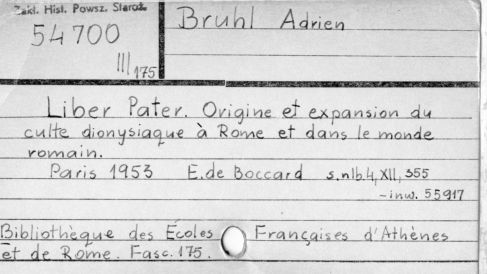 Zakł. Hist. Powsz. Staroż.
54700
III 175
Bruhl Adrien
Liber Pater. Origine et expansion du
culte dionysiaque à Rome et dans le monde
romain.
Paris 1953 E. de Boccard s. nlb. 4, XII, 355
- inw. 55917
Bibliothèque des Écoles Françaises d'Athènes
et de Rome. Fasc. 175.